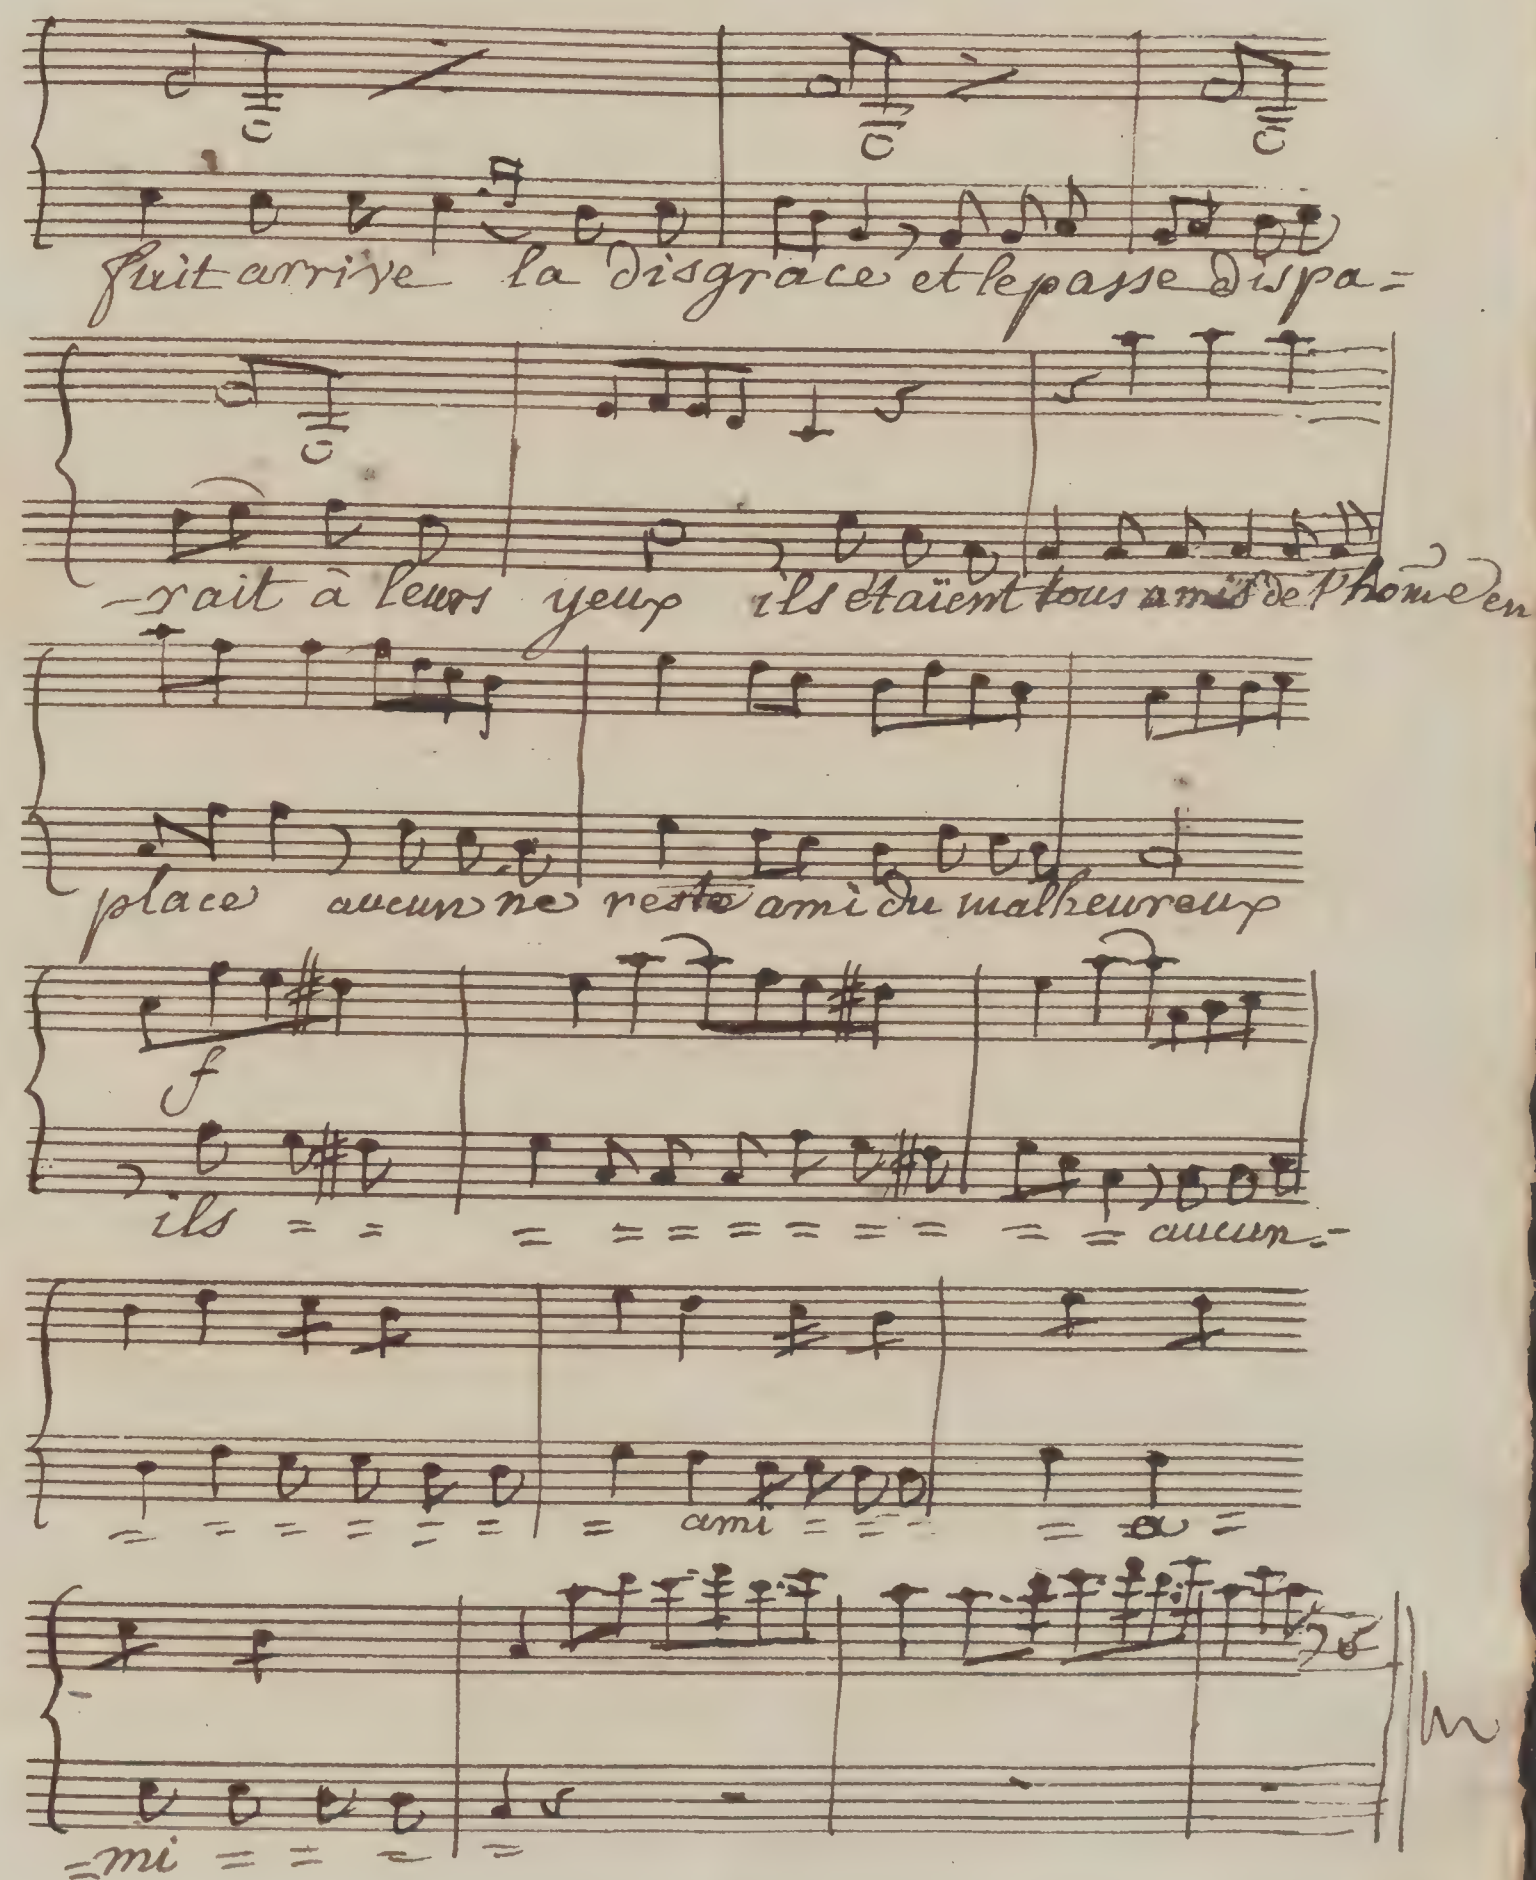 fuit arrive la disgrace et le passe dispa=
-rait à leurs yeux ils étaïent tous amis de l'home en
place aucun ne reste ami du malheureux
f
ils = = = = = = = = = = = aucun =
= = = = = = = ami = = = = a =
=mi = = = =